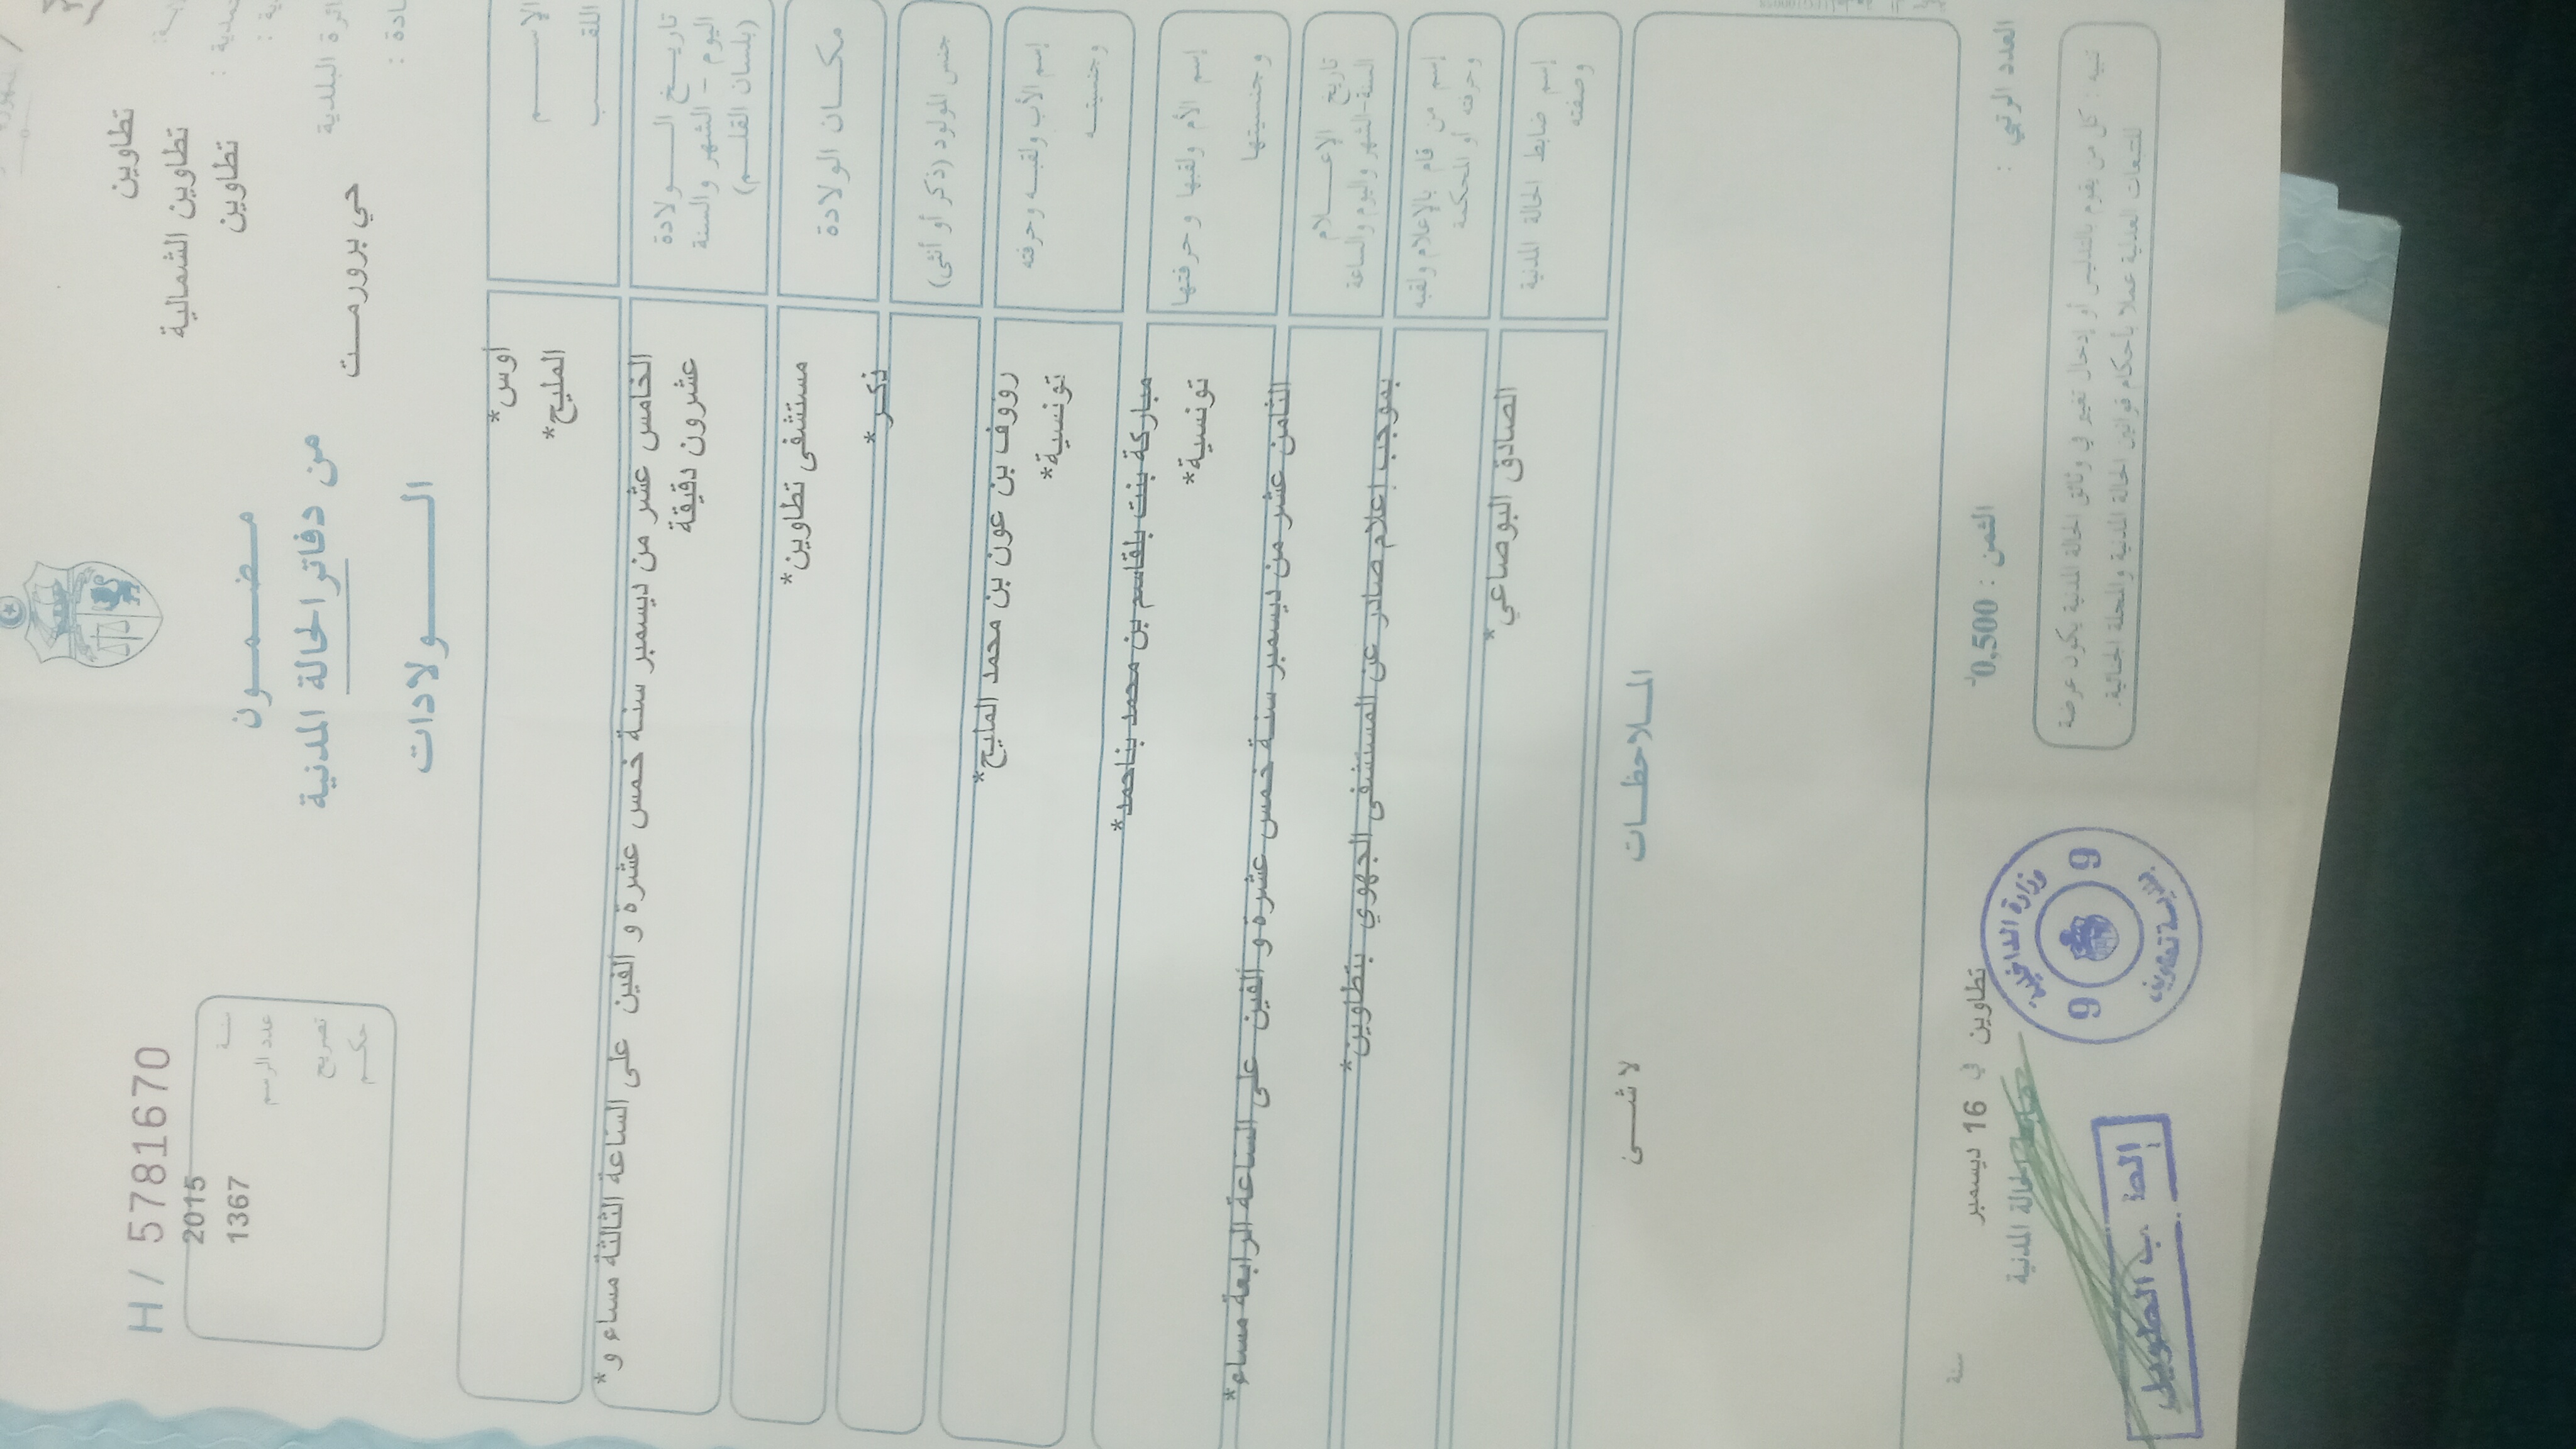 تطاوين
تطاوين الشمالية
تطاوين
ـائرة البلدية
حي برورمـــت
مضمـــون
من دفاتر الحالة المدنية
الـــولادات
H / 5781670
سنة 2015
عدد الرسم 1367
تصريح
حكم
الإســـم أوس*
اللقـــب المليح*
تاريـــخ الـــولادة
اليوم - الشهر والسنة
(بلسان القلـــم)
الخامس عشر من ديسمبر سنة خمس عشرة و الفين على الساعة الثالثة مساء و*
عشرون دقيقة
مكـــان الولادة مستشفى تطاوين*
جنس المولود (ذكر أو أنثى) ذكر*
إسم الأب ولقبـــه وحرفته
وجنسيتـــه
رؤوف بن عون بن محمد المليح*
تونسية*
إسم الأم ولقبها و حرفتها
وجنسيتها
مباركة بنت بلقاسم بن محمد بناحمد*
تونسية*
تاريخ الإعـــلام
السنة-الشهر واليوم والساعة
الثامن عشر من ديسمبر سنة خمس عشرة و الفين على الساعة الرابعة مساء*
إسم من قام بالإعلام ولقبه
وحرفته أو المحكمة
بموجب اعلام صادر عن المستشفى الجهوي بتطاوين*
إسم ضابط الحالة المدنية
وصفته
الصادق البوصاعي*
المـــلاحظـــات
لا شـــئ
العدد الرتبي :
الثمن : 0,500د
تطاوين في 16 ديسمبر سنة
الحالة المدنية
تنبيه : كل من يقوم بالتدليس أو إدخال تغيير في وثائق الحالة المدنية يكون عرضة
للتتبعات العدلية عملا بأحكام قوانين الحالة المدنية والمجلة الجنائية.
وزارة الداخلية
9 9